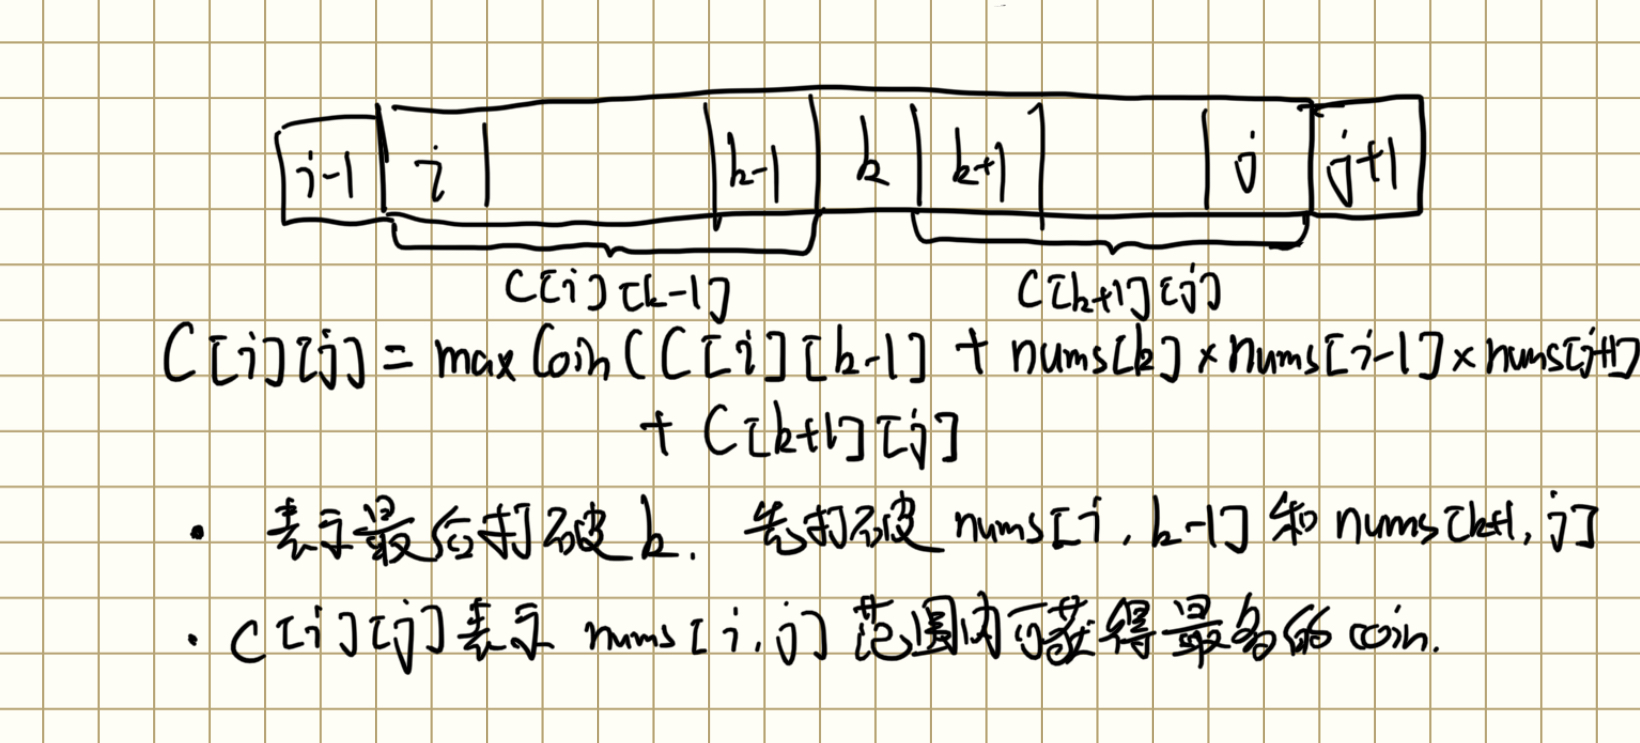 i-1 i k-1 k k+1 j j+1
C[i][k-1] C[k+1][j]
C[i][j] = max Coin(C[i][k-1] + nums[k] × nums[i-1] × nums[j+1]
+ C[k+1][j]
· 表示最后打破 k. 先打破 nums[i, k-1] 和 nums[k+1, j]
· C[i][j] 表示 nums[i, j] 范围内可获得最多的 coin.